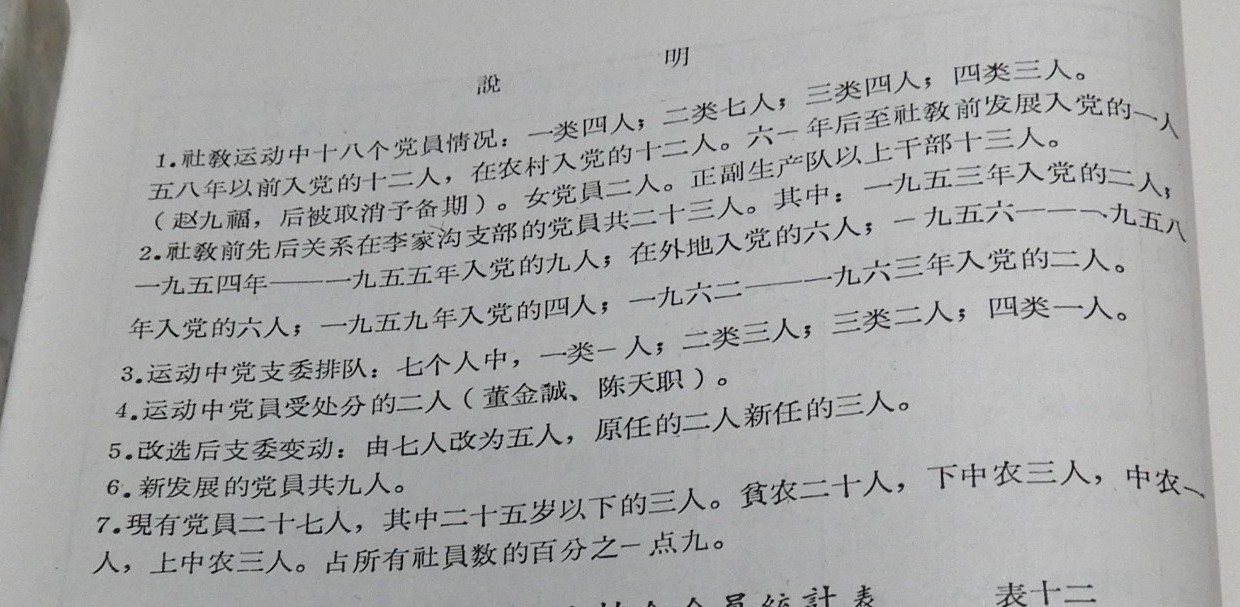 說 明
1.社敎运动中十八个党員情况：一类四人；二类七人；三类四人；四类三人。
五八年以前入党的十二人，在农村入党的十二人。六一年后至社敎前发展入党的一人
（赵九福，后被取消予备期）。女党員二人。正副生产队以上干部十三人。
2.社敎前先后关系在李家沟支部的党員共二十三人。其中：一九五三年入党的二人；
一九五四年——一九五五年入党的九人；在外地入党的六人；一九五六——一九五八
年入党的六人；一九五九年入党的四人；一九六二——一九六三年入党的二人。
3.运动中党支委排队：七个人中，一类一人；二类三人；三类二人；四类一人。
4.运动中党員受处分的二人（董金誠、陈天职）。
5.改选后支委变动：由七人改为五人，原任的二人新任的三人。
6.新发展的党員共九人。
7.現有党員二十七人，其中二十五岁以下的三人。貧农二十人，下中农三人，中农一
人，上中农三人。占所有社員数的百分之一点九。
員統計表 表十二